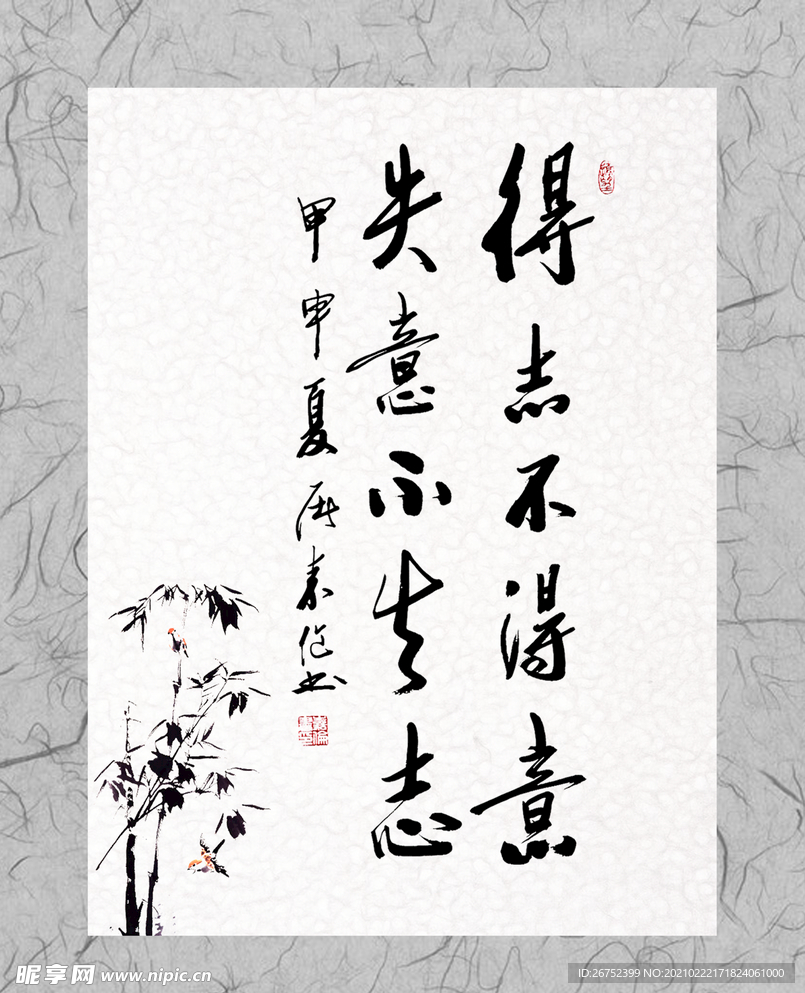 得志不得意
失意不失志
甲申夏
昵享网 www.nipic.cn
ID:26752399 NO:20210222171824061000